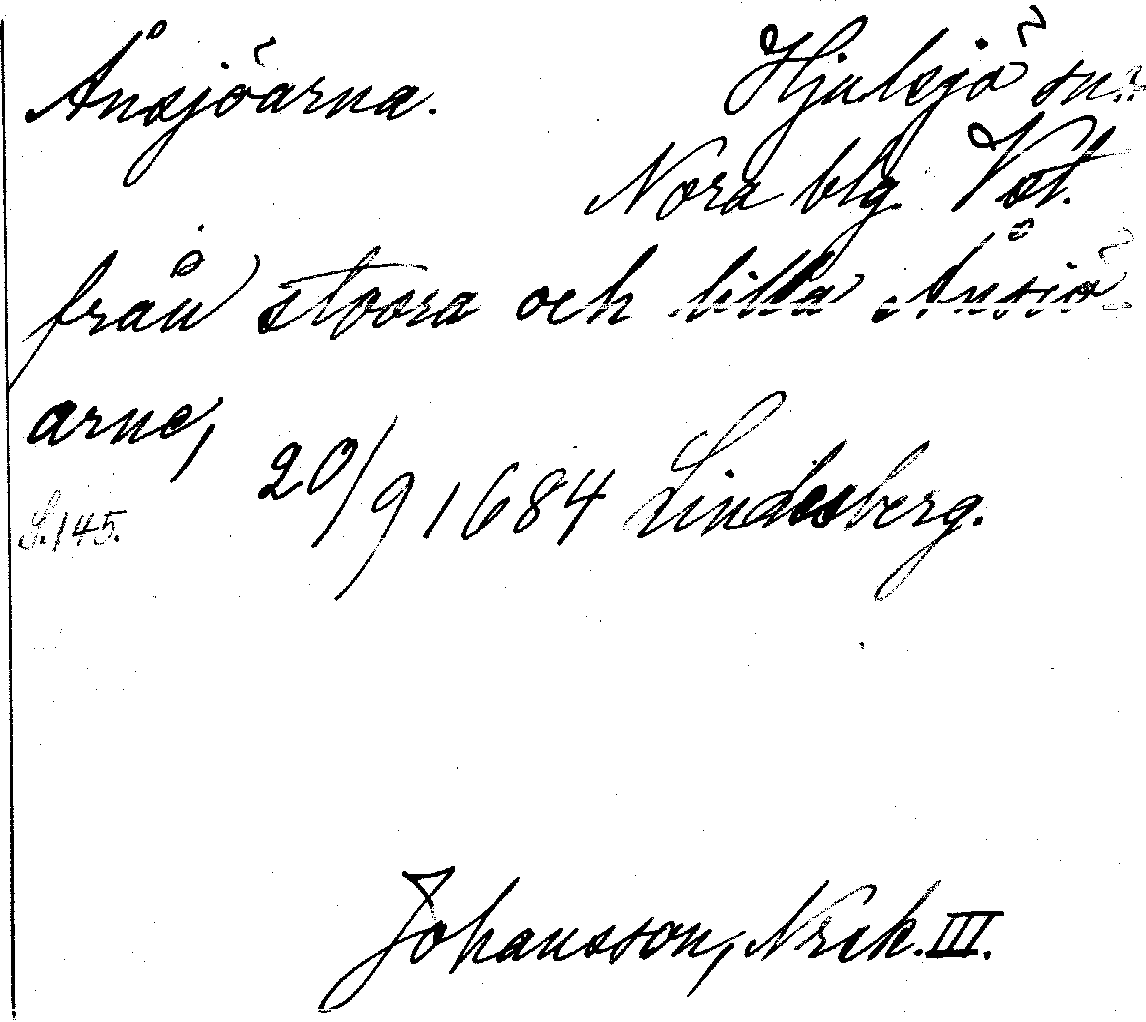 Ånsjöarna. Hjulsjö sn.
Nora blg. Vst.
från stoora och lilla Ånsiö
arne,
20/9 1684 Lindesberg.
S. 145.
Johansson, Nrck. III.